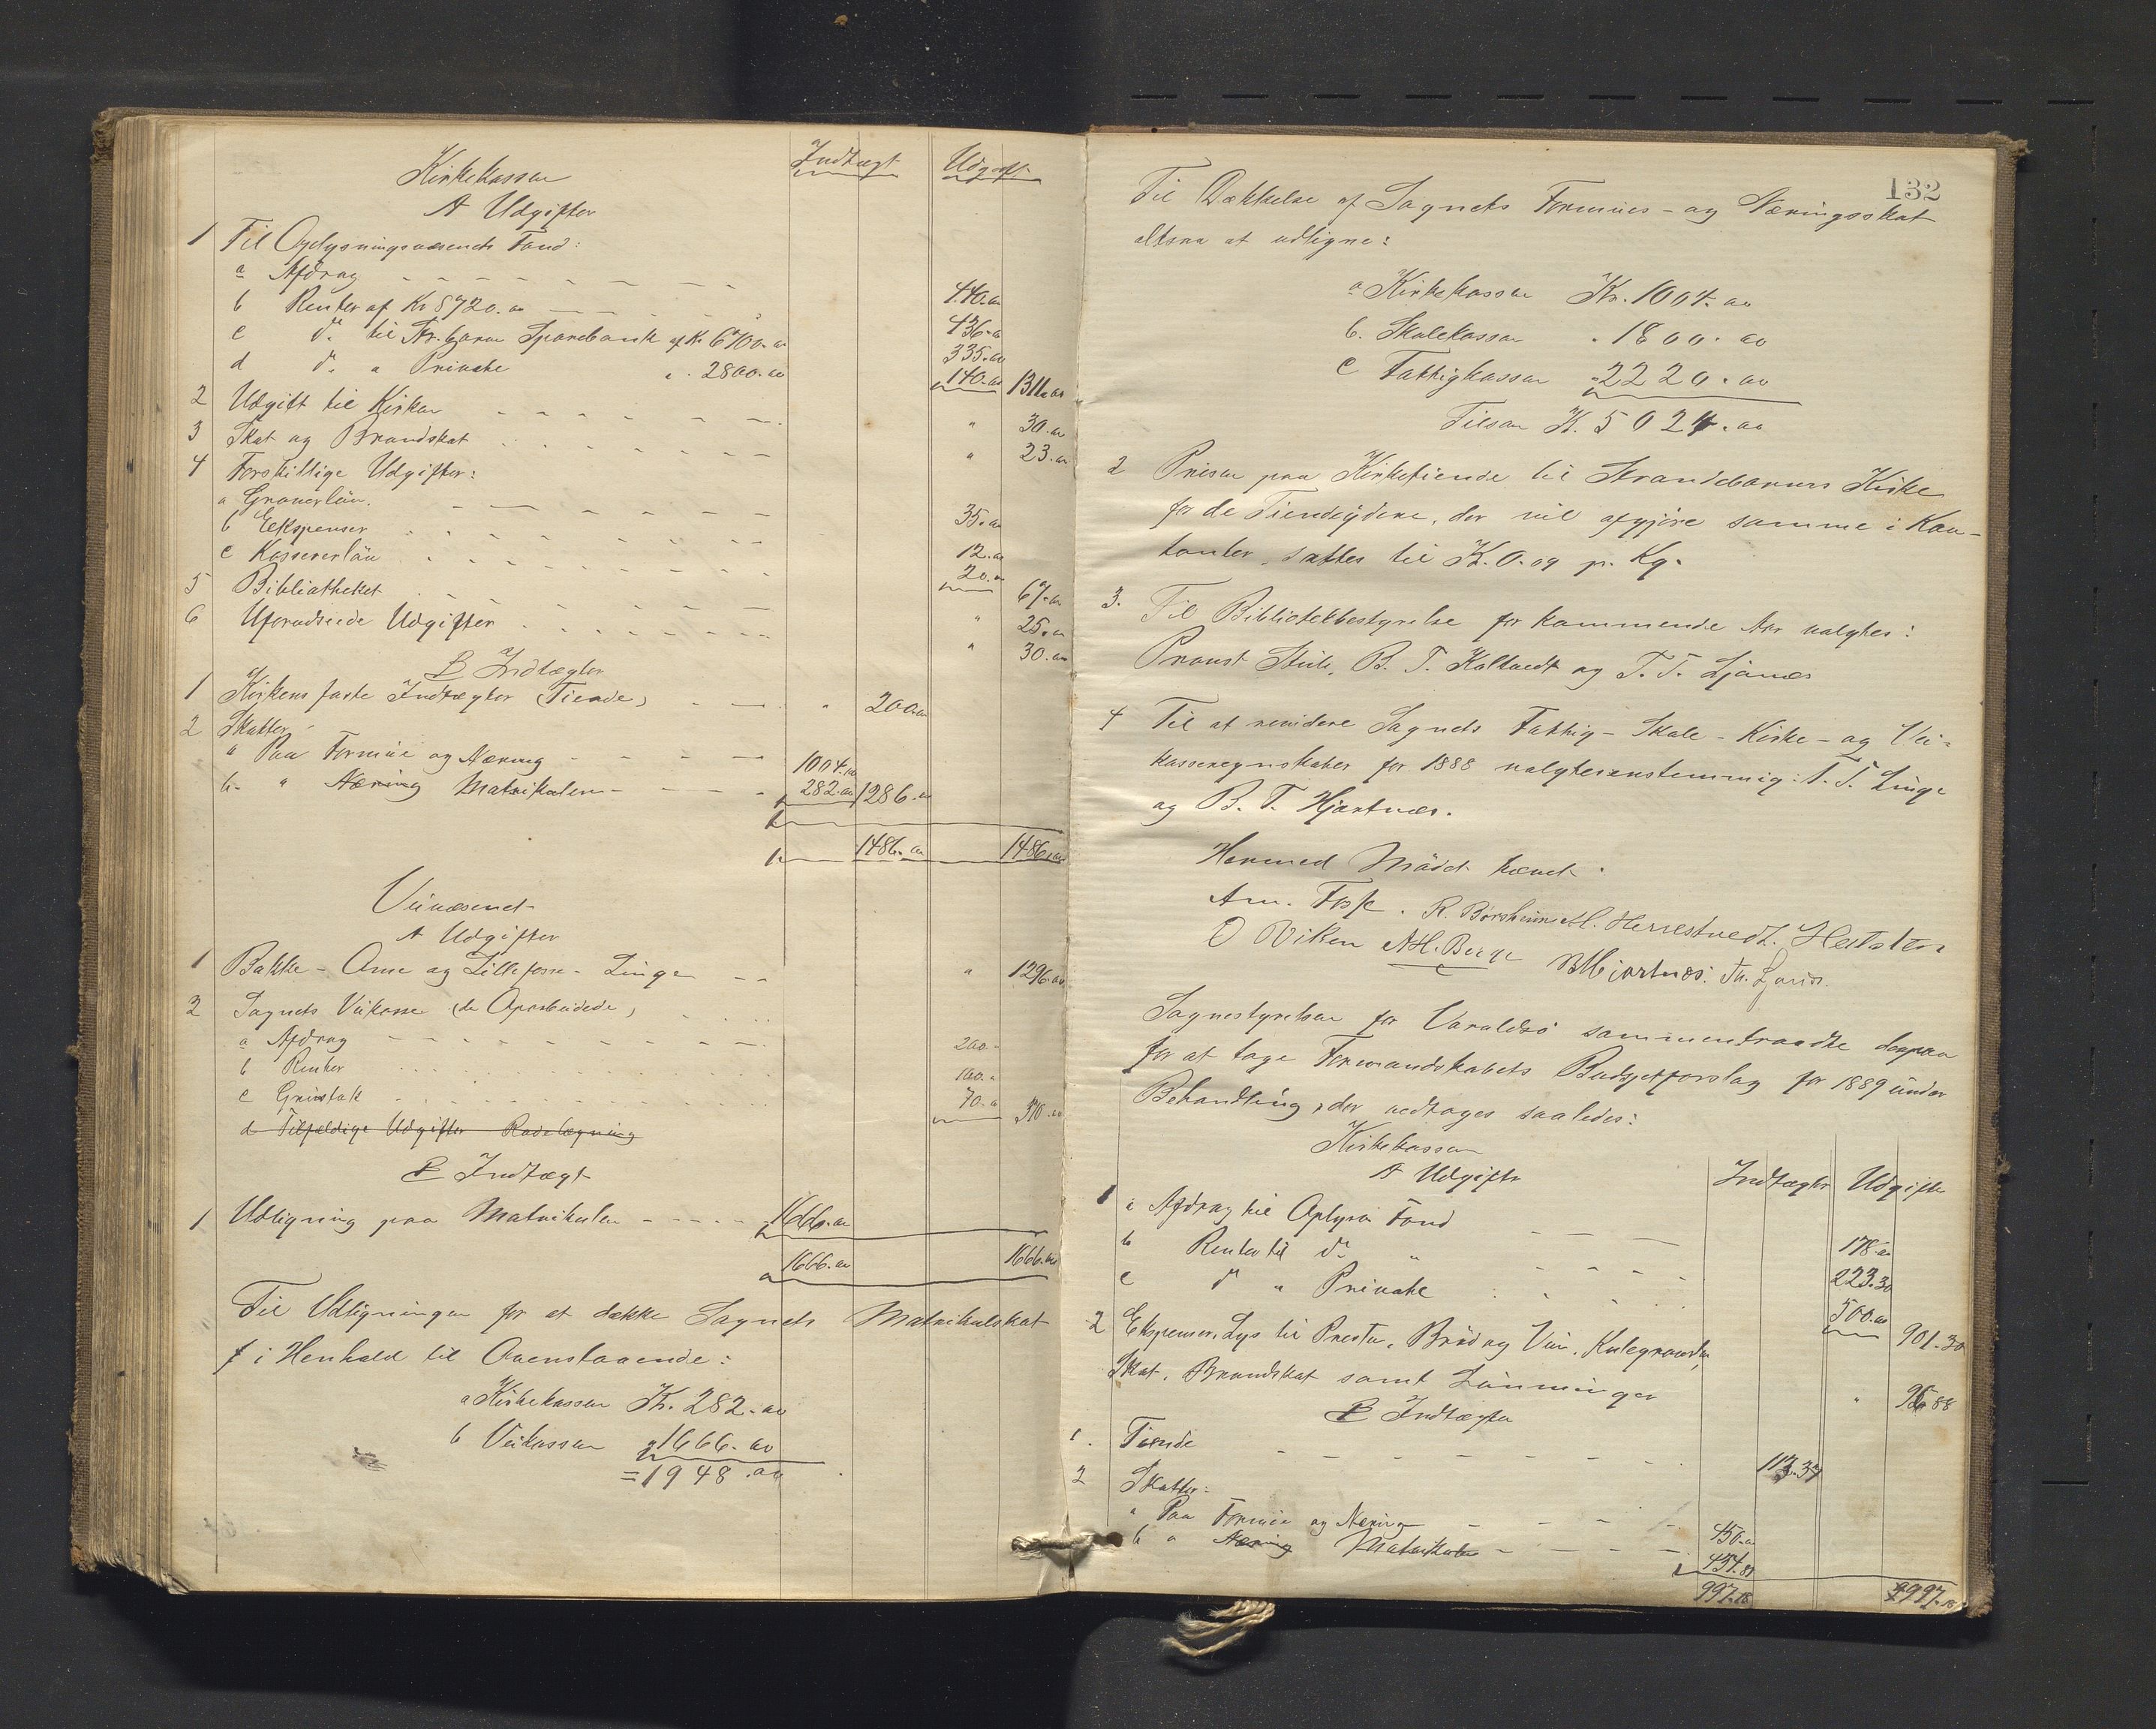 Indtægt Udgift
Kirkekassen
A Udgifter
1 Til Oplysningsvæsenets Fond:
a Afdrag 440.00
b Renter af Kr 8720.00 436.00
c do. til Str.barm Sparebank af Kr. 6700.00 335.00
d do. " Private " 2800.00 140.00 1311.00
2 Udgift til Kirken " 30.00
3 Skat og Brandskat " 23.00
4 Forskillige Udgifter:
a Graverløn. 35.00
b Ekspenser 12.00
c Kassererløn 20.00 67.00
5 Bibliotheket " 25.00
6 Uforudseede Udgifter " 30.00
B Indtægter
1 Kirkens faste Indtægter (Tiende) " 200.00
2 Skatter
a Paa Formue og Næring 1004.00
b. " Næring Matrikulen 282.00 1286.00
1486.00 1486.00
Veivæsenet
A Udgifter
1 Bakke - Ome og Lillefosse - Linge " 1296.00
2 Sognets Veikasse (de Oparbeidede)
a Afdrag 200.-
b Renter 100.-
c Grustak 70.- 370.00
d Tilfældige Udgifter Rodelægning
B Indtægt
1 Udligning paa Matrikulen 1666.00
1666.00 1666.00
Til Udligningen for at dække Sognets Matrikulskat
f i Henhold til Ovenstaaende:
a Kirkekassen Kr. 282.00
b Veikassen " 1666.00
= 1948.00
132
Til Dækkelse af Sognets Formues- og Næringsskat
altsaa at udligne:
a Kirkekassen Kr. 1004.00
b. Skolekassen " 1800.00
c Fattigkassen " 2220.00
Tilsam K. 5024.00
2 Prisen paa Kirketiende til Strandebarms Kirke
for de Tiendeydere, der vil afgjøre samme i Kon-
tanter, sattes til K. 0.09 pr. Kg.
3. Til Bibliotekbestyrelse for kommende Aar valgtes:
Provst Stub, B. T. Kaltvedt og T. T. Ljones
4 Til at revidere Sognets Fattig- Skole- Kirke- og Vei-
kasseregnskaber for 1888 valgtes enstemmig: T. T. Linge
og B. T. Hjartnæs.
Hermed Mødet hævet.
Am. Fosse. R. Børsheim M. Herrestvedt.
O Viken A H. Berge B Hjartnæs. Th. Ljones.
Sognestyrelsen for Varaldsø sammentraadte derpaa
for at tage Formandskabets Budgetforslag for 1889 under
Behandling, der vedtages saaledes:
Kirkekassen
A Udgifter Indtægter Udgifter
1 a Afdrag til Oplysn Fond 178.00
b Renter til do. " 223.30
c do " Private 500.00 901.30
2 Ekspenser, Lys til Presten, Brød og Vin, Kulegraver,
Skat, Brandskat samt Lønninger " 95.88
B Indtægter
1. Tiende 112.37
2 Skatter:
a Paa Formue og Næring 450.00
b " Næring Matrikulen 434.81
997.18 997.18